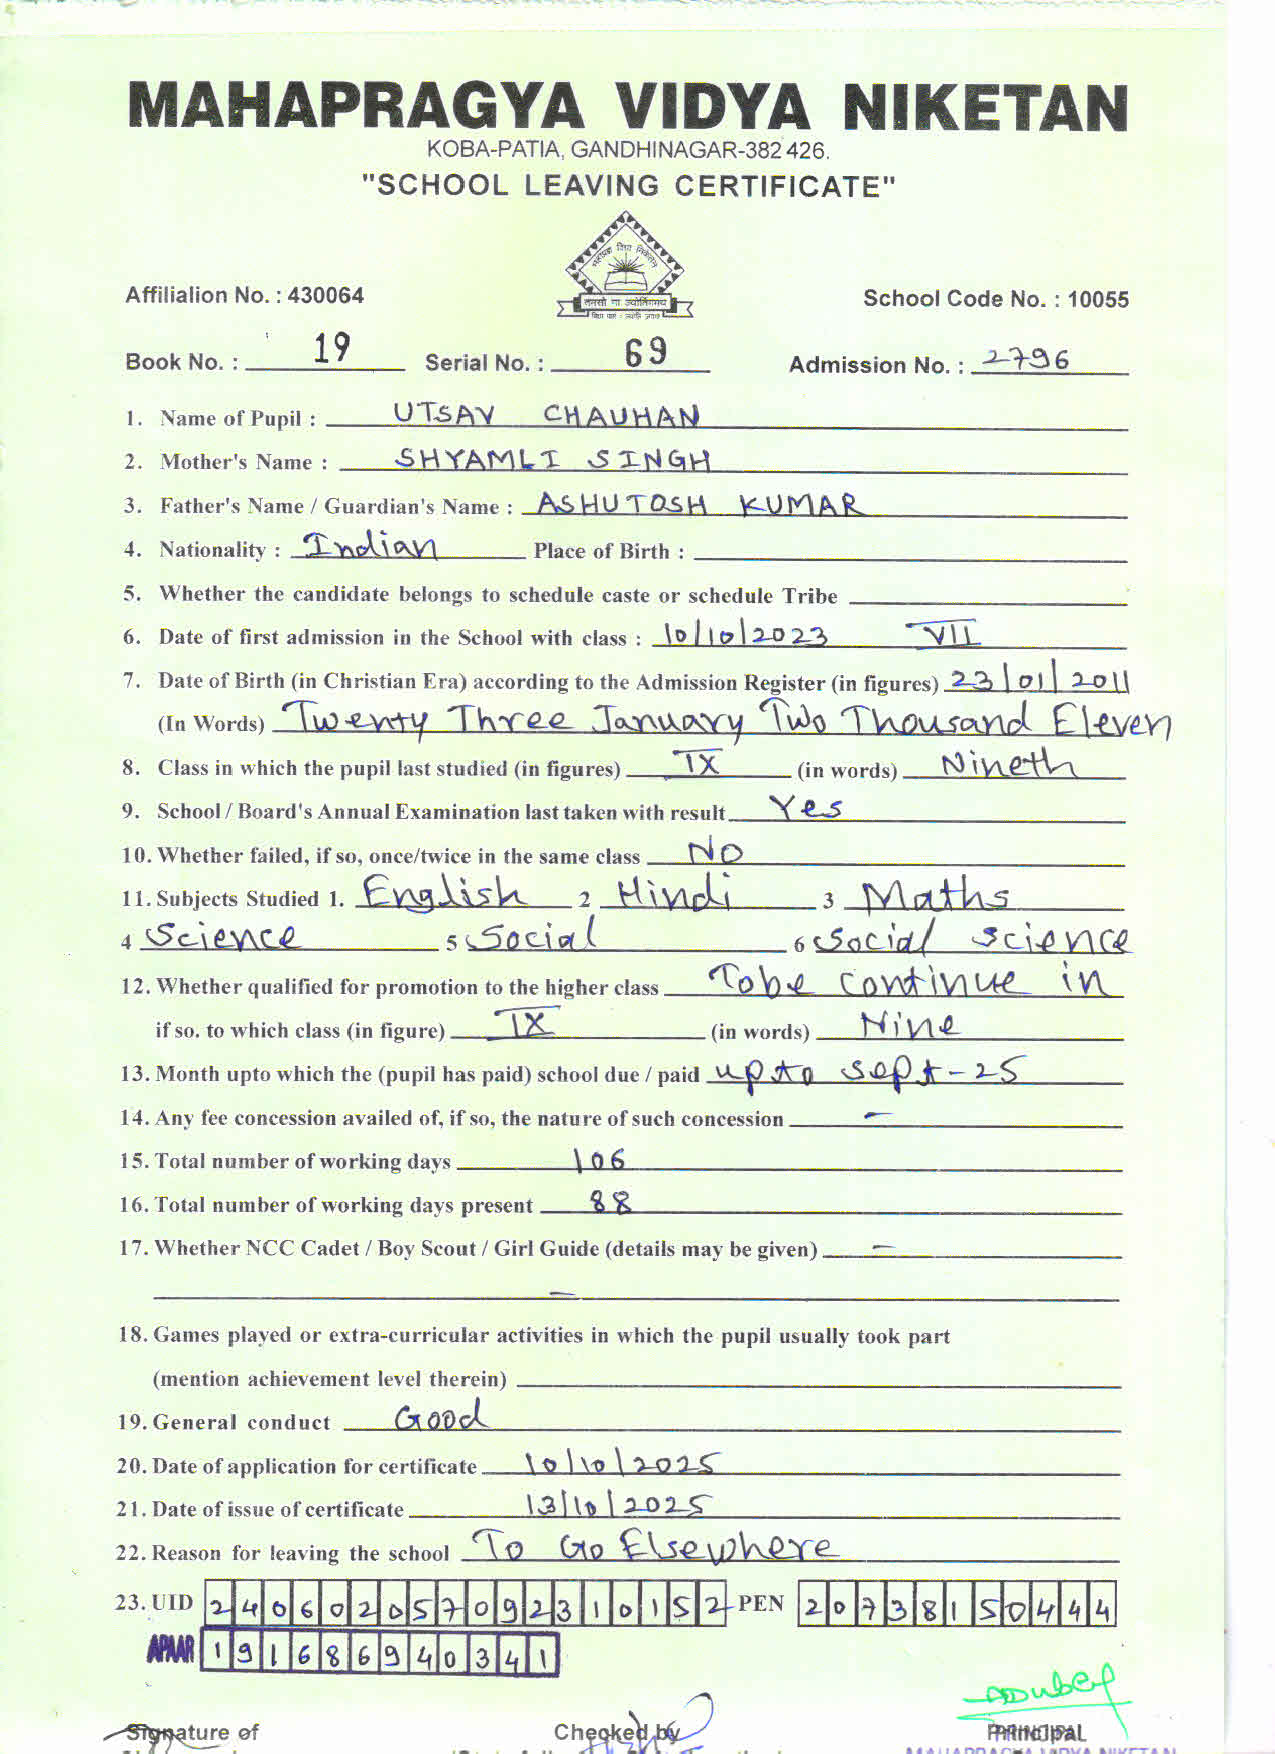 MAHAPRAGYA VIDYA NIKETAN
KOBA-PATIA, GANDHINAGAR-382 426.
"SCHOOL LEAVING CERTIFICATE"
तमसो मा ज्योतिर्गमय
Affilialion No. : 430064 School Code No. : 10055
Book No. : 19 Serial No. : 69 Admission No. : 2796
1. Name of Pupil : UTSAV CHAUHAN
2. Mother's Name : SHYAMLI SINGH
3. Father's Name / Guardian's Name : ASHUTOSH KUMAR
4. Nationality : Indian Place of Birth :
5. Whether the candidate belongs to schedule caste or schedule Tribe
6. Date of first admission in the School with class : 10/10/2023 VII
7. Date of Birth (in Christian Era) according to the Admission Register (in figures) 23/01/2011
(In Words) Twenty Three January Two Thousand Eleven
8. Class in which the pupil last studied (in figures) IX (in words) Nineth
9. School / Board's Annual Examination last taken with result Yes
10. Whether failed, if so, once/twice in the same class No
11. Subjects Studied 1. English 2 Hindi 3 Maths
4 Science 5 Social 6 Social Science
12. Whether qualified for promotion to the higher class Tobe continue in
if so. to which class (in figure) IX (in words) Nine
13. Month upto which the (pupil has paid) school due / paid upto sept-25
14. Any fee concession availed of, if so, the nature of such concession –
15. Total number of working days 106
16. Total number of working days present 88
17. Whether NCC Cadet / Boy Scout / Girl Guide (details may be given) –
–
18. Games played or extra-curricular activities in which the pupil usually took part
(mention achievement level therein)
19. General conduct Good
20. Date of application for certificate 10/10/2025
21. Date of issue of certificate 13/10/2025
22. Reason for leaving the school To Go Elsewhere
23. UID 240602057092310152 PEN 20738150444
APAAR 191686940341
ADubey
Signature of Checked by PRINCIPAL
MAHAPRAGYA VIDYA NIKETAN